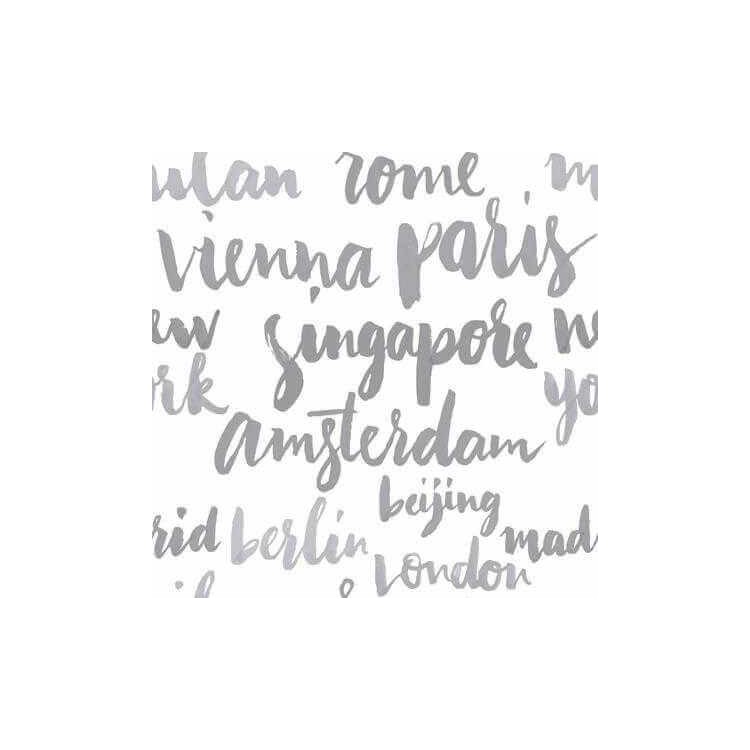 ulan rome m
vienna paris
ew singapore ne
ork yo
amsterdam
beijing
rid berlin mad
london